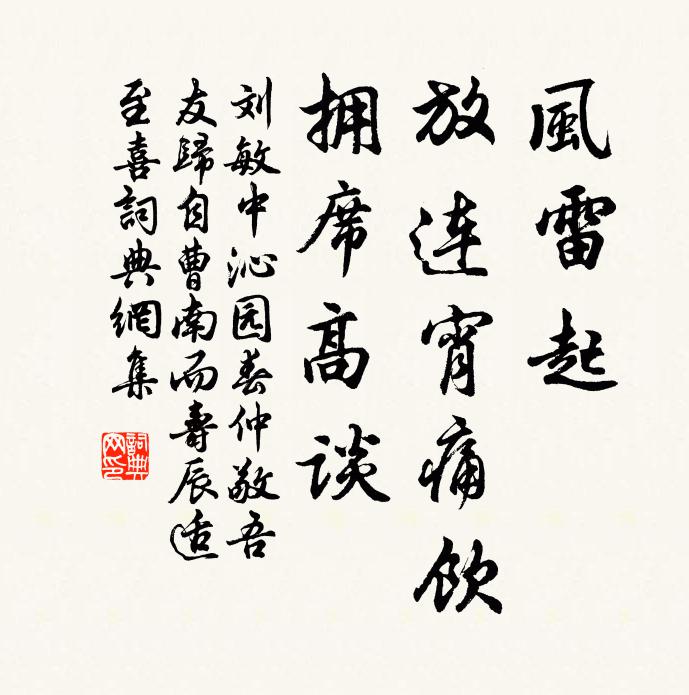 風雷起
放连宵痛饮
拥席高谈
刘敏中沁园春仲敬吾
友歸自曹南而壽辰适
至喜詞典網集
詞典
网印